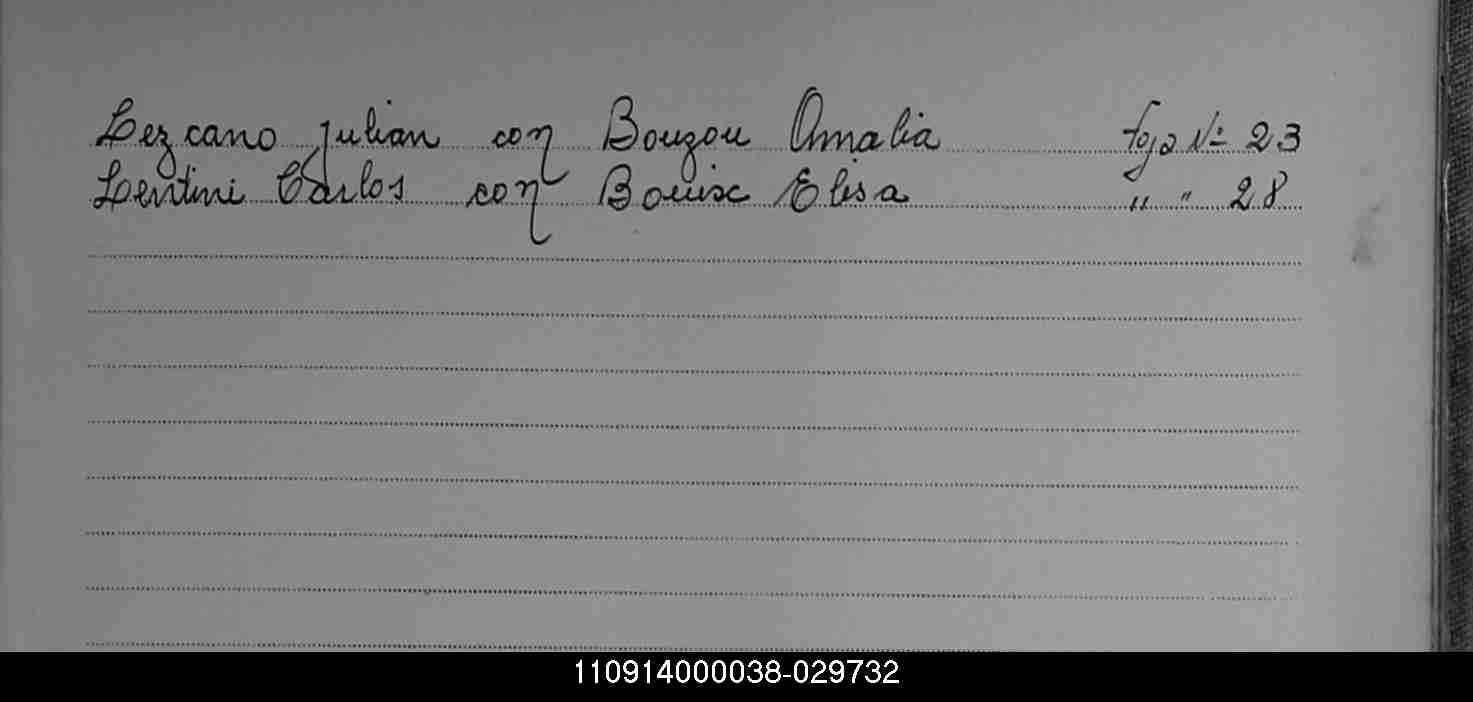 Lezcano Julian con Bouzou Amalia foja Nº 23
Lentini Carlos con Bouix Elisa " " 28
110914000038-029732